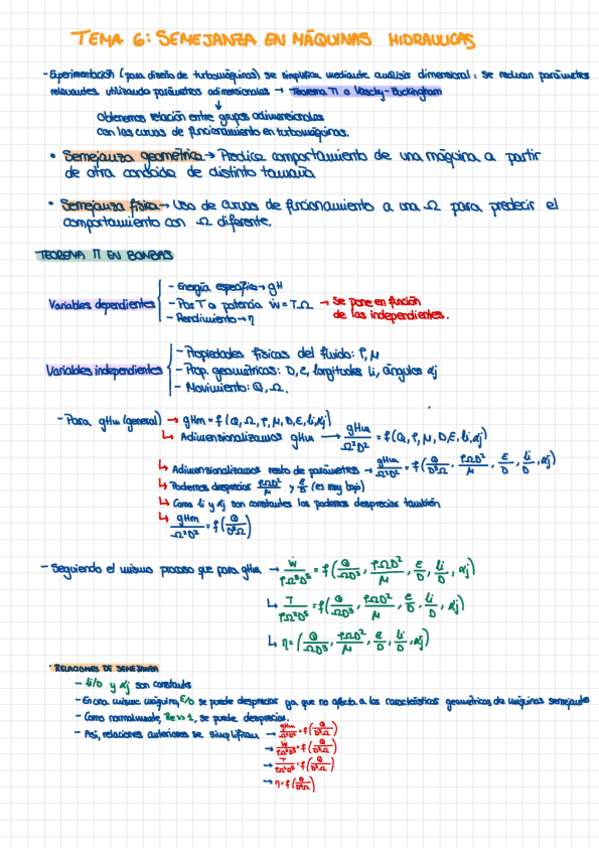 TEMA 6: SEMEJANZA EN MÁQUINAS HIDRAULICAS
- Experimentación (para diseño de turbomáquinas) se simplifica mediante análisis dimensional, se reducen parámetros
relevantes utilizando parámetros adimensionales → Teorema π o Vaschy-Buckingham
↓
Obtenemos relación entre grupos adimensionales
con las curvas de funcionamiento en turbomáquinas.
• Semejanza geométrica → Predice comportamiento de una máquina a partir
de otra conocida de distinto tamaño
• Semejanza física → Uso de curvas de funcionamiento a una Ω para predecir el
comportamiento con Ω diferente.
TEOREMA π EN BOMBAS
Variables dependientes { - Energía específica → gH
- Par T o potencia Ẇ = T·Ω → Se pone en función
- Rendimiento → η de las independientes.
Variables independientes { - Propiedades físicas del fluido: ρ, μ
- Prop. geométricas: D, ε, longitudes li, ángulos αj
- Movimiento: Q, Ω.
- Para gHm (general) → gHm = f(Q, Ω, ρ, μ, D, ε, li, αj)
↳ Adimensionalizamos gHm → gHm/Ω²D² = f(Q, ρ, μ, D, ε, li, αj)
↳ Adimensionalizamos resto de parámetros → gHm/Ω²D² = f(Q/D³Ω, ρΩD²/μ, ε/D, li/D, αj)
↳ Podemos despreciar ρΩD²/μ y ε/D (es muy bajo)
↳ Como li y αj son constantes los podemos despreciar también
↳ gHm/Ω²D² = f(Q/D³Ω)
- Seguiendo el mismo proceso que para gHm → Ẇ/ρΩ³D⁵ = f(Q/ΩD³, ρΩD²/μ, ε/D, li/D, αj)
↳ T/ρΩ²D⁵ = f(Q/ΩD³, ρΩD²/μ, ε/D, li/D, αj)
↳ η = (Q/ΩD³, ρΩD²/μ, ε/D, li/D, αj)
· RELACIONES DE SEMEJANZA
- li/D y αj son constantes
- En una misma máquina, ε/D se puede despreciar ya que no afecta a las características geométricas de máquinas semejantes
- Como normalmente, Re >> 1, se puede despreciar.
- Así, relaciones anteriores se simplifican → gHm/Ω²D² = f(Q/D³Ω)
→ Ẇ/ρΩ³D⁵ = f(Q/D³Ω)
→ T/ρΩ²D⁵ = f(Q/D³Ω)
→ η = f(Q/D³Ω)